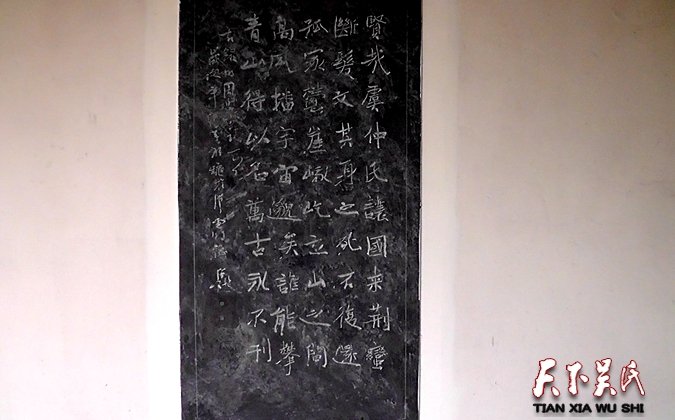 賢哉虞仲氏讓國來荆蠻
斷髮文其身之死不復還
孤冢崖屹立山之間
高風播宇宙邈矣誰能攀
青山得以名萬古永不刊
天下吴氏
TIAN XIA WU SHI